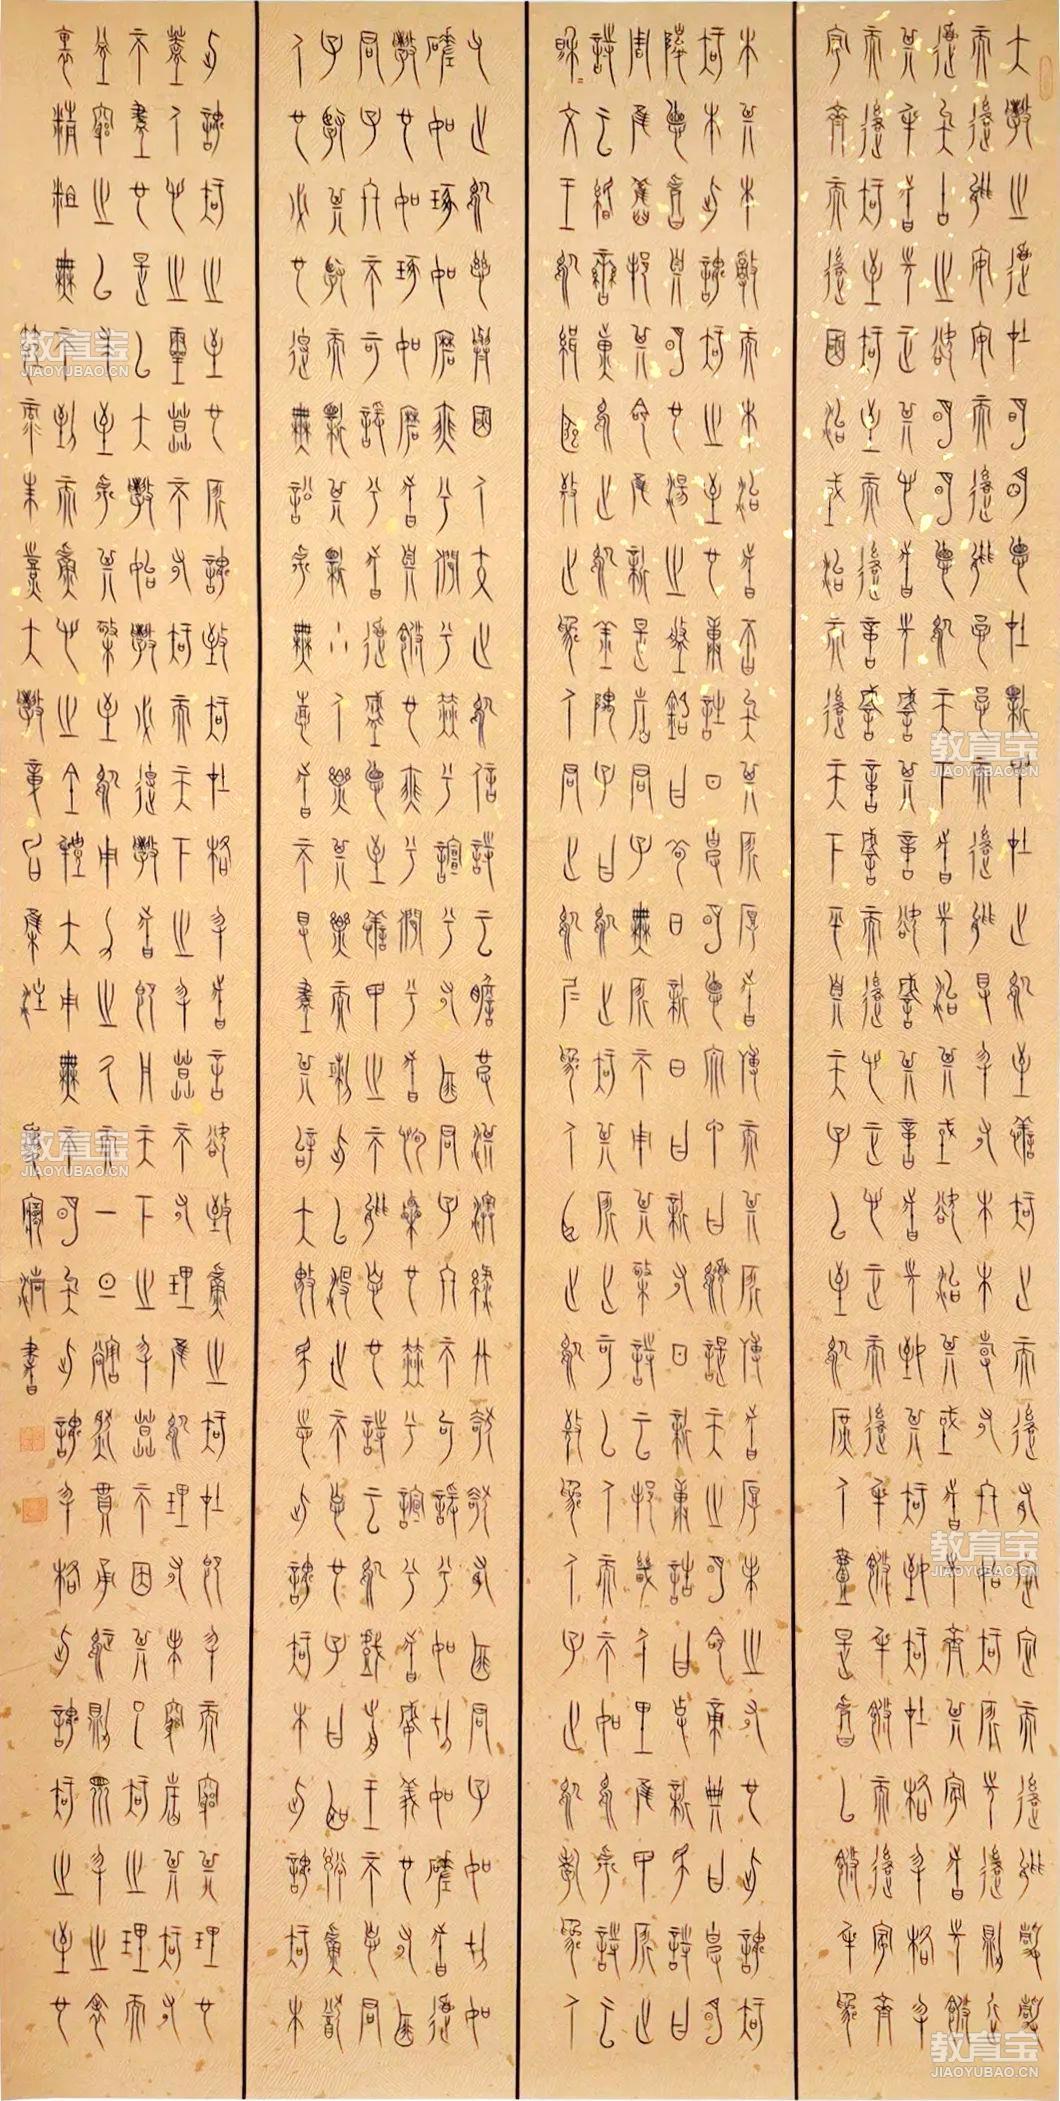 大學之道在明明德在親民在止於至善知止而後有定定而後能靜靜
而後能安安而後能慮慮而後能得物有本末事有終始知所先後則近
道矣古之欲明明德於天下者先治其國欲治其國者先齊其家者先脩
其身者先正其心者先誠其意欲誠其意者先致其知致知在格物格物
而後知至知至而後意誠意誠而後心正心正而後身脩身脩而後家齊
家齊而後國治國治而後天下平自天子以至於庶人壹是皆以脩身為
本其本亂而末治者否矣其所厚者薄而其所薄者厚未之有也此謂知
知本此謂知之至也康誥曰克明德大甲曰顧諟天之明命帝典曰克明
峻德皆自明也湯之盤銘曰苟日新日日新又日新康誥曰作新民詩曰
周雖舊邦其命惟新是故君子無所不用其極詩云邦畿千里惟民所止
詩云緡蠻黃鳥止于丘隅子曰於止知其所止可以人而不如鳥乎詩云
穆穆文王於緝熙敬止為人君止於仁為人臣止於敬為人子止於孝為人
父止於慈與國人交止於信詩云瞻彼淇澳菉竹猗猗有斐君子如切如
磋如琢如磨瑟兮僩兮赫兮喧兮有斐君子終不可諠兮如切如磋者道
學也如琢如磨者自脩也瑟兮僩兮者恂慄也赫兮喧兮者威儀也有斐
君子終不可諠兮者道盛德至善民之不能忘也詩云於戲前王不忘君
子賢其賢而親其親小人樂其樂而利此以沒世不忘也子曰聽訟吾猶
人也必也使無訟乎無情者不得盡其辭大畏民志此謂知本此謂知本
此謂知之至也所謂致知在格物者言欲致吾之知在即物而窮其理也
蓋人心之靈莫不有知而天下之物莫不有理惟於理有未窮故其知有
不盡也是以大學始教必使學者即凡天下之物莫不因其已知之理而
益窮之以求至乎其極至於用力之久而一旦豁然貫通焉則眾物之表
裏精粗無不到而吾心之全體大用無不明矣此謂物格此謂知之至也
節錄朱熹大學章句集注 書
教育宝
JIAOYUBAO.CN
教育宝
JIAOYUBAO.CN
教育宝
JIAOYUBAO.CN
教育宝
JIAOYUBAO.CN
教育宝
JIAOYUBAO.CN